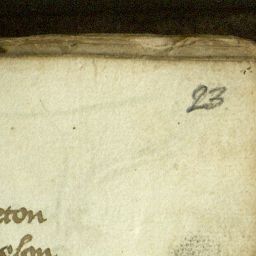 23
eton
elon